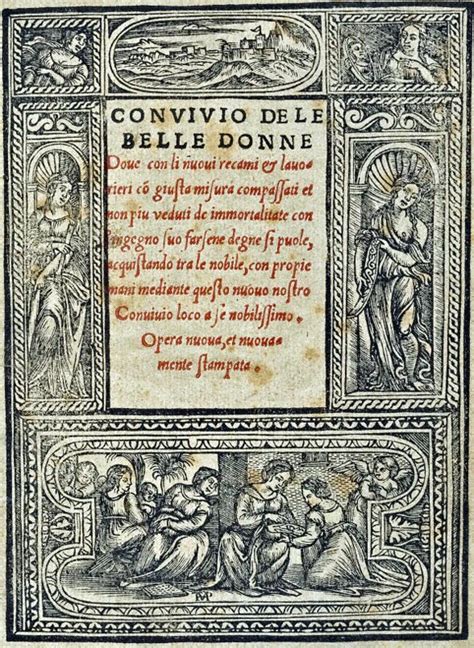 CONVIVIO DELE
BELLE DONNE
Doue con li nuoui recami & lauo-
rieri cō giusta misura compassati et
non piu veduti de immortalitate con
l'ingegno suo farsene degne si puole,
acquistando tra le nobile, con propie
mani mediante questo nuouo nostro
Conuiuio loco a se nobilissimo.
Opera nuoua, et nuoua-
mente stampata.